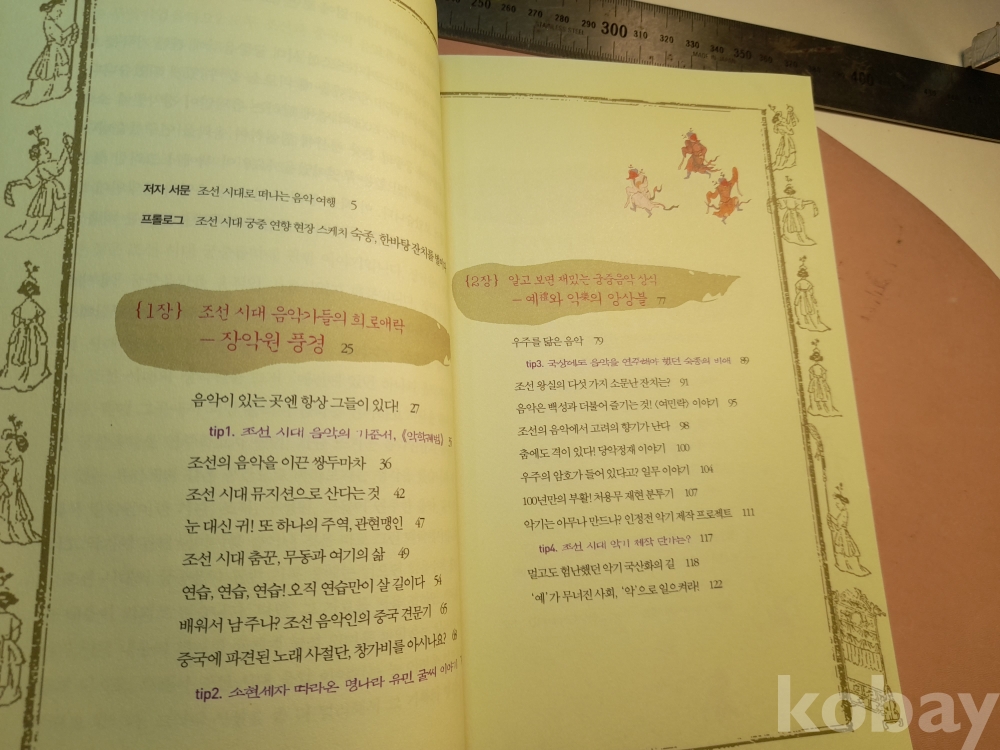 저자 서문 조선 시대로 떠나는 음악 여행 5
프롤로그 조선 시대 궁중 연향 현장 스케치 숙종, 한바탕 잔치를
{1장} 조선 시대 음악가들의 희로애락
– 장악원 풍경 25
음악이 있는 곳엔 항상 그들이 있다! 27
tip1. 조선 시대 음악의 기준서, 《악학궤범》 3
조선의 음악을 이끈 쌍두마차 36
조선 시대 뮤지션으로 산다는 것 42
눈 대신 귀! 또 하나의 주역, 관현맹인 47
조선 시대 춤꾼, 무동과 여기의 삶 49
연습, 연습, 연습! 오직 연습만이 살 길이다 54
배워서 남 주나? 조선 음악인의 중국 견문기 65
중국에 파견된 노래 사절단, 창가비를 아시나요? 68
tip2. 소현세자 따라온 명나라 유민 굴씨 이야기
{2장} 알고 보면 재밌는 궁중음악 상식
– 예禮와 악樂의 앙상블 77
우주를 닮은 음악 79
tip3. 국상에도 음악을 연주해야 했던 숙종의 비애 89
조선 왕실의 다섯 가지 소문난 잔치는? 91
음악은 백성과 더불어 즐기는 것! 〈여민락〉 이야기 95
조선의 음악에서 고려의 향기가 난다 98
춤에도 격이 있다! 당악정재 이야기 100
우주의 암호가 들어 있다고? 일무 이야기 104
100년만의 부활! 처용무 재현 분투기 107
악기는 아무나 만드나? 인정전 악기 제작 프로젝트 111
tip4. 조선 시대 악기 제작 단가는? 117
멀고도 험난했던 악기 국산화의 길 118
'예'가 무너진 사회, '악'으로 일으켜라! 122
STAINLESS STEEL
260 270 280 290 300 310 320 330 340 350 360 400
kobay